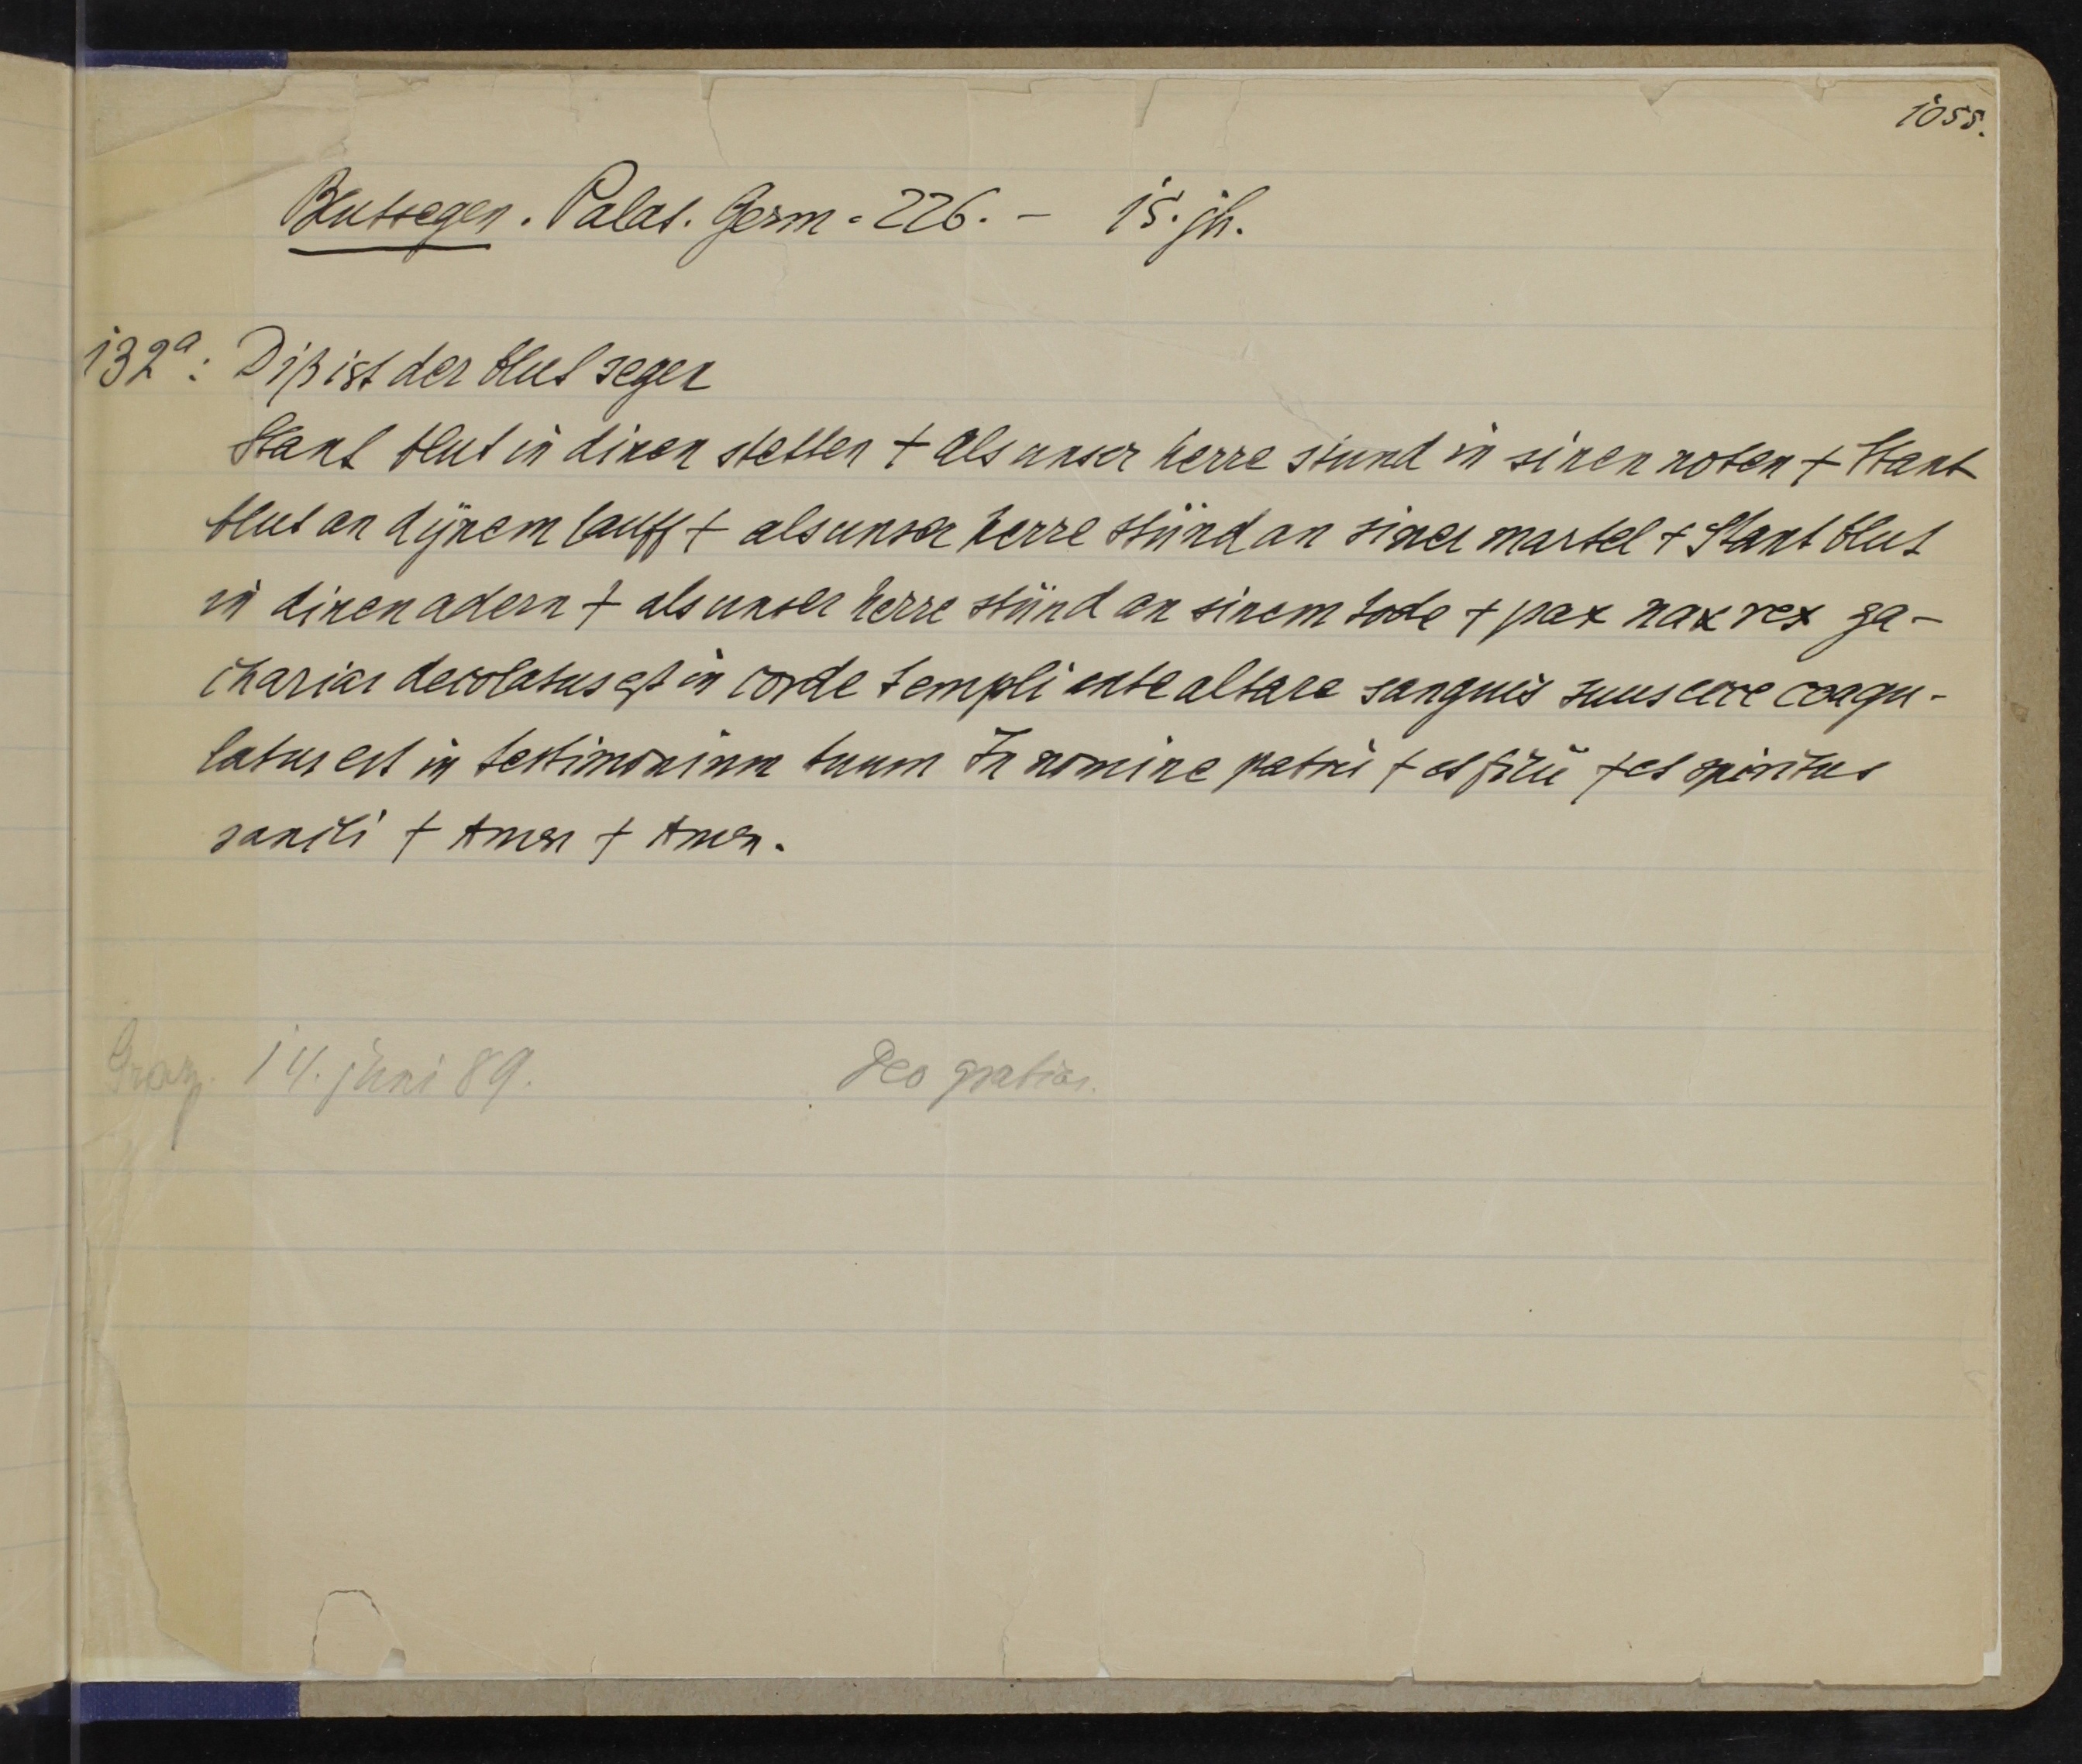 1055.
Blutsegen. Palat. Germ. 226. – 15. jh.
132ª: Diß ist der blut segen
Stant blut in dinen stetten + als unser herre stund in sinen noten + Stant
blut an dÿnem lauff + als unser herre stünd an siner martel + Stant blut
in dinen adern + als unser herre stünd an sinem tode + pax nax rex za-
charias decolatus est in corde templi ante altare sanguis suus ecce coagu-
latus est in testimonium tuum In nomine patris + et filii + et spiritus
sancti + Amen + Amen.
Graz. 14. juni 89. Deo gratias.